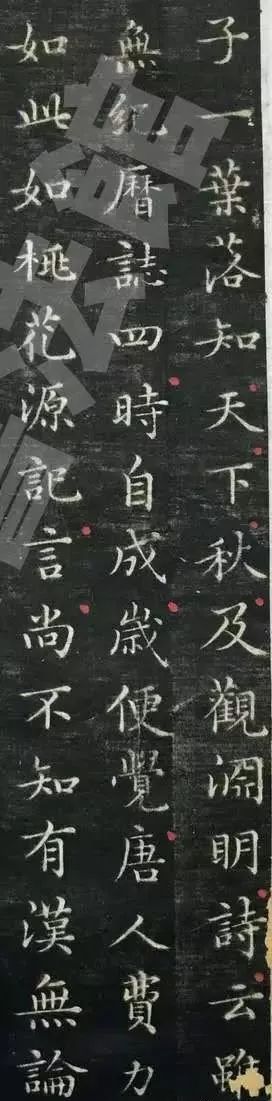 子一葉落知天下秋及觀淵明詩云雖
無紀曆誌四時自成歲便覺唐人費力
如此如桃花源記言尚不知有漢無論